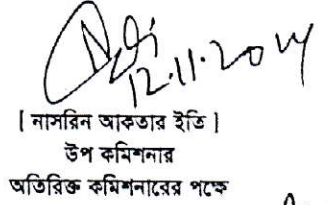 12.11.2014
[ নাসরিন আকতার ইতি ]
উপ কমিশনার
অতিরিক্ত কমিশনারের পক্ষে